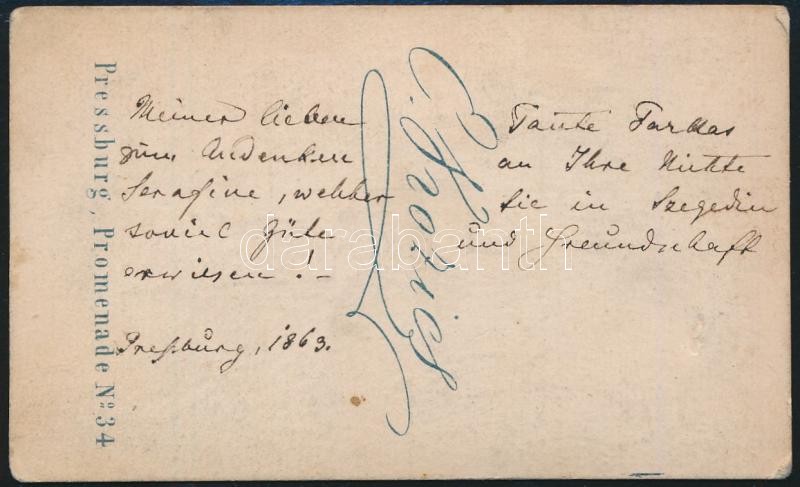 Meiner lieben Tante Farkas
zum Andenken an Ihre Nichte
Serafine, welcher Sie in Szegedin
soviel Güte und Freundschaft
erwiesen! –
Preßburg, 1863.
Pressburg, Promenade No: 34
darabanth